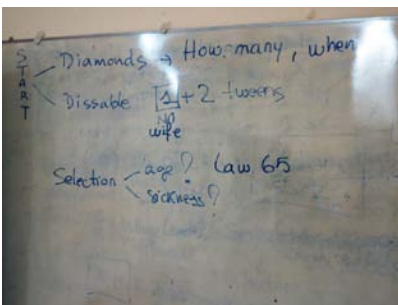 START
Diamonds → How many, when
Dissable 1 + 2 tweens
NO
wife
Selection age? Law 65
sickness?